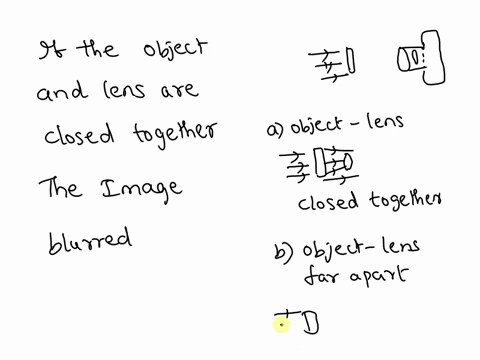 If the object
and lens are
closed together
The Image
blurred
a) object-lens
closed together
b) object-lens
far apart